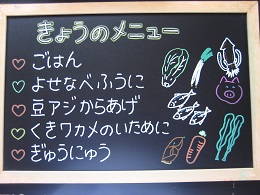 きょうのメニュー
ごはん
よせなべふうに
豆アジからあげ
くきワカメのいために
ぎゅうにゅう